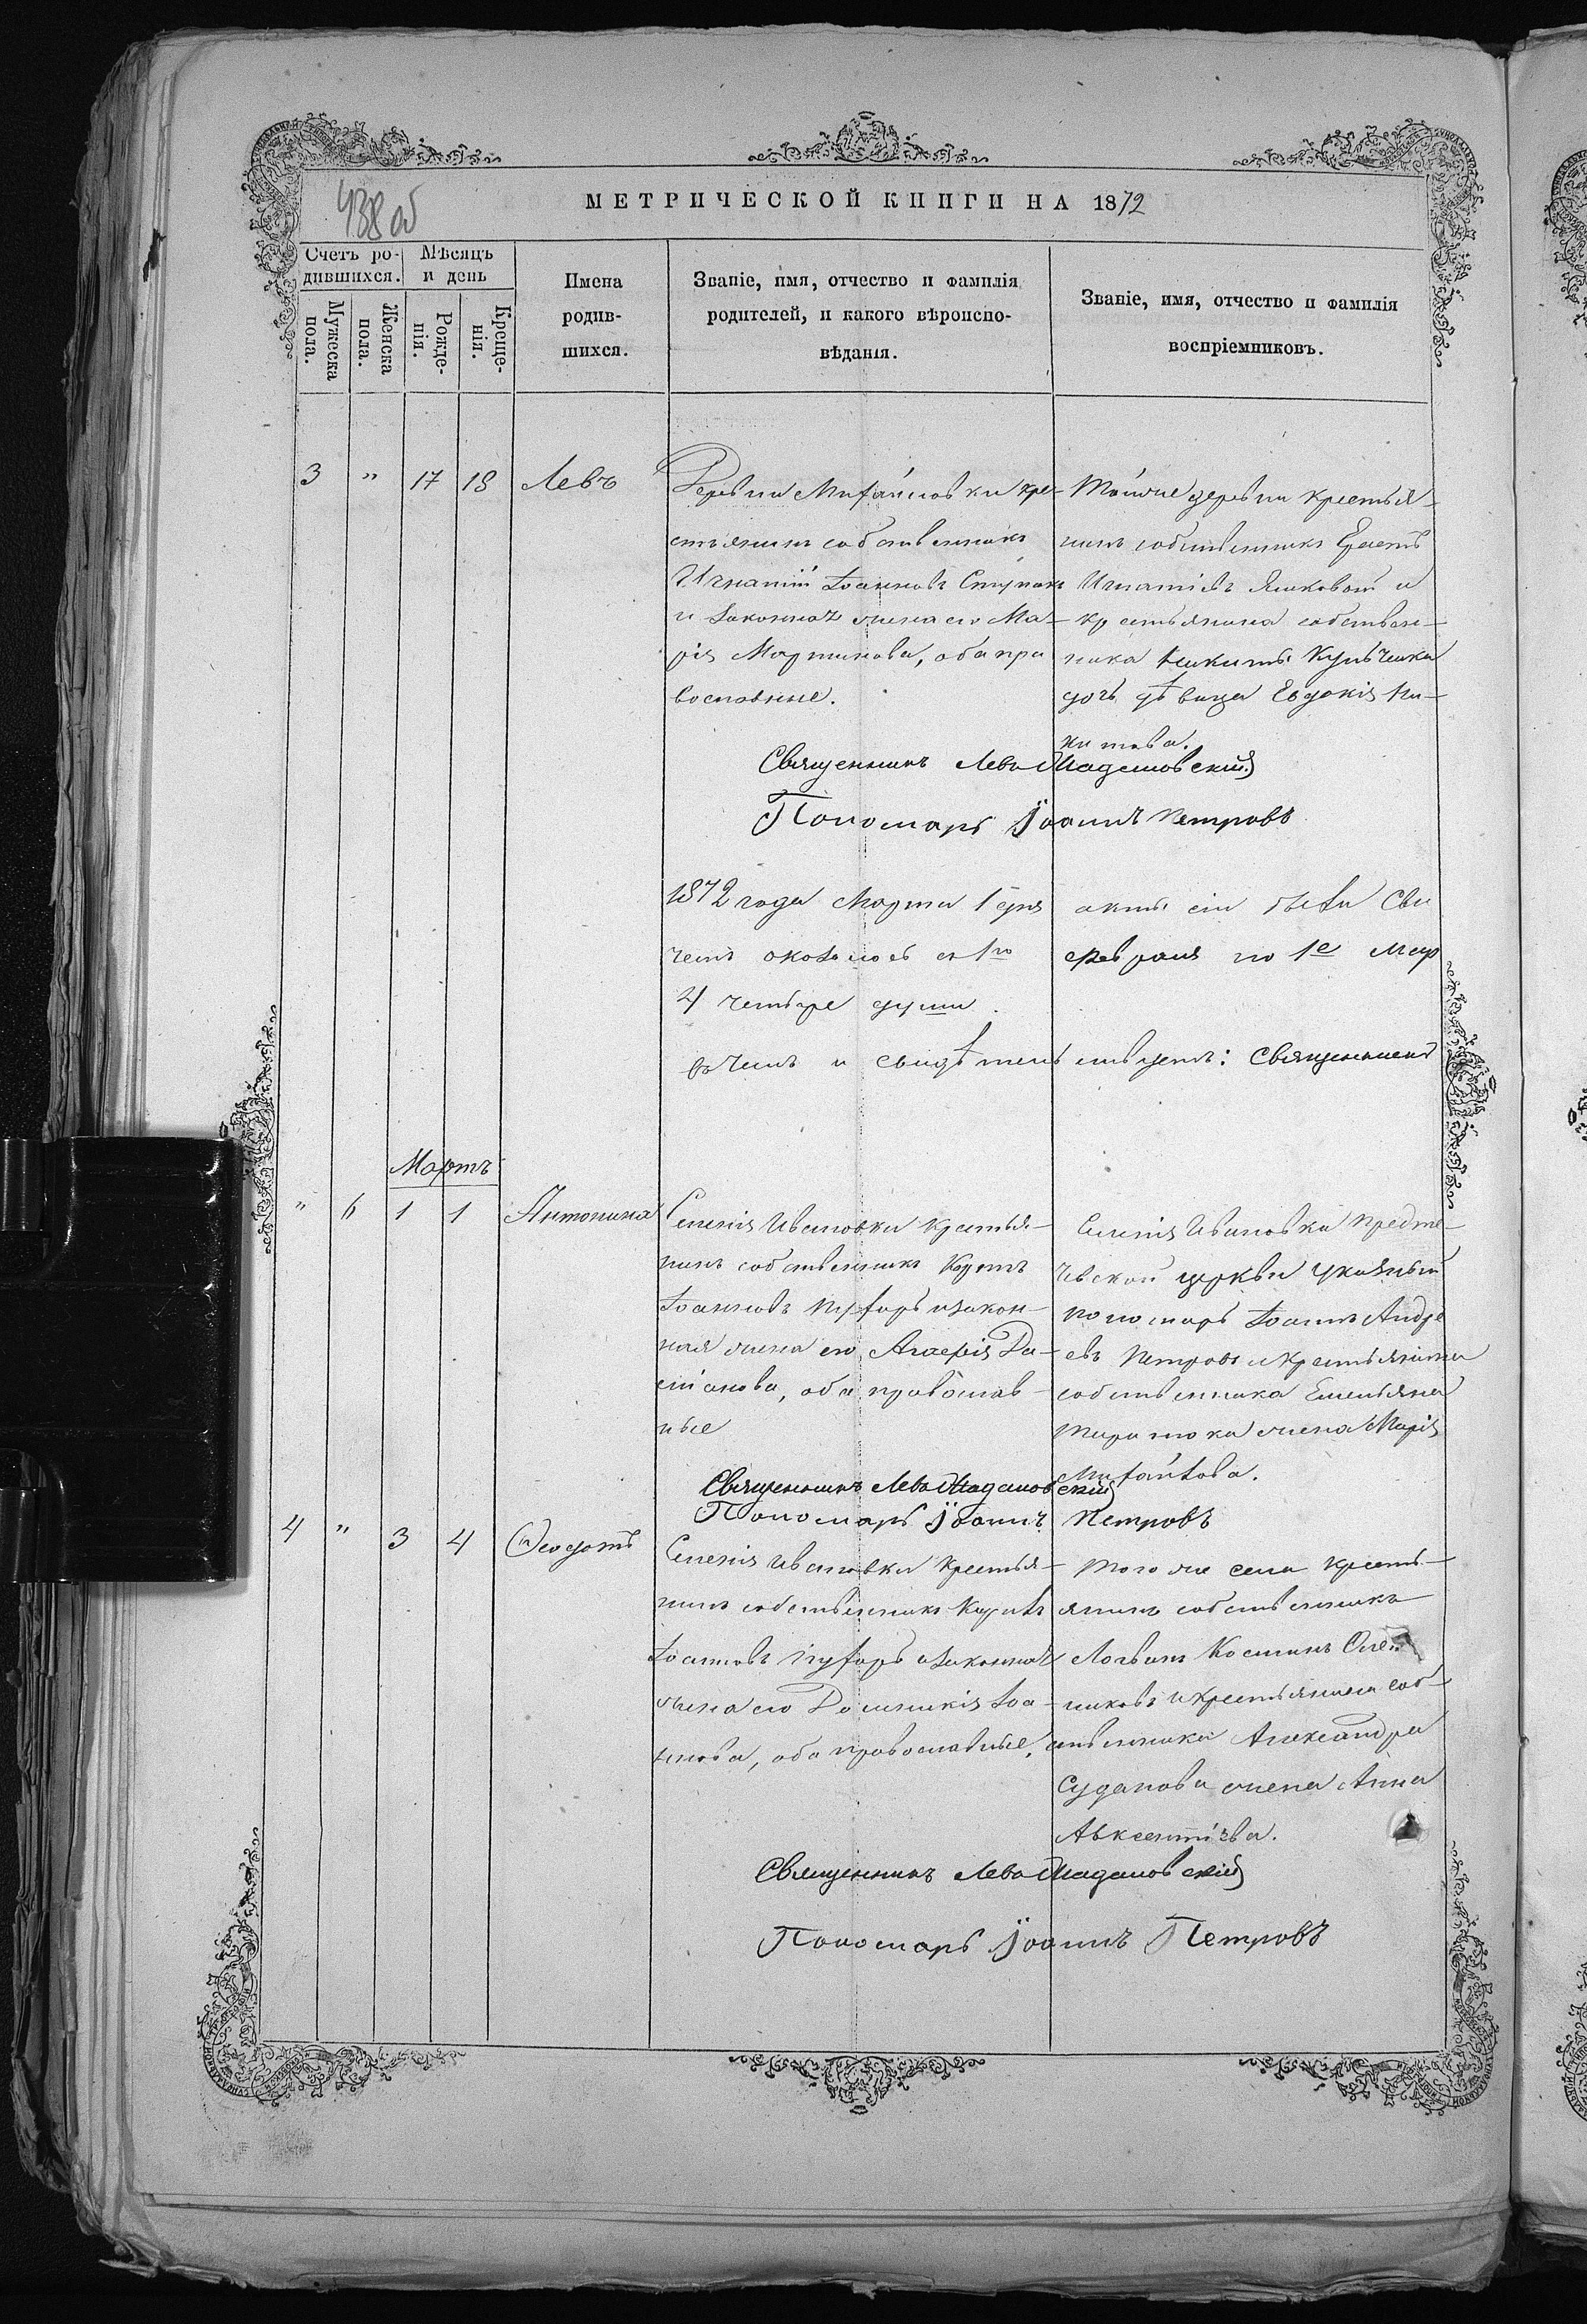 438 об
МЕТРИЧЕСКОЙ КНИГИ НА 1872
Счетъ ро-
дившихся.
Мужеска
пола.
Женска
пола.
Мѣсяцъ
и день
Рожде-
нія.
Креще-
нія.
Имена
родив-
шихся.
Званіе, имя, отчество и фамилія
родителей, и какого вѣроиспо-
вѣданія.
Званіе, имя, отчество и фамилія
воспріемниковъ.
3 " 17 18 Левъ
Деревни Михайловки кре-
стьянинъ собственникъ
Игнатій Іоанновъ Ступакъ
и законная жена его Ма-
рія Мартинова, оба пра
вославные.
Тойже деревни крестья-
нинъ собственникъ
Игнатіевъ и
крестьянина собствен-
ника Никиты
дочь дѣвица Евдокія Ни-
китова.
Священникъ Левъ
Пономарь Іоаннъ Петровъ
1872 года Марта 1 дня акты сіи
чемъ оказалось съ 1го февраля по 1е Мар
4 четыре души.
въ чемъ и свидѣтельствуетъ: Священникъ
Мартъ
" 6 1 1 Антонина
Селенія Ивановки крестья-
нинъ собственникъ
Іоанновъ и закон-
ная жена его, Агафія Да-
міанова, оба православ-
ные
Селенія Ивановки Предте-
чевской церкви указный
пономарь Іоаннъ Андре
евъ Петровъ и крестьянина
собственника Емельяна
жена Марія
Михайлова.
Священникъ Левъ
Пономарь Іоаннъ Петровъ
4 " 3 4 Ѳеодотъ
Селенія Ивановки крестья-
нинъ собственникъ
Іоанновъ и законная
жена его Домникія Іоа-
ннова, оба православные.
Того же села кресть-
янинъ собственникъ
Логвинъ Косминъ
и крестьянина соб-
ственника Александра
Суданова жена Анна
Авксентіева.
Священникъ Левъ
Пономарь Іоаннъ Петровъ